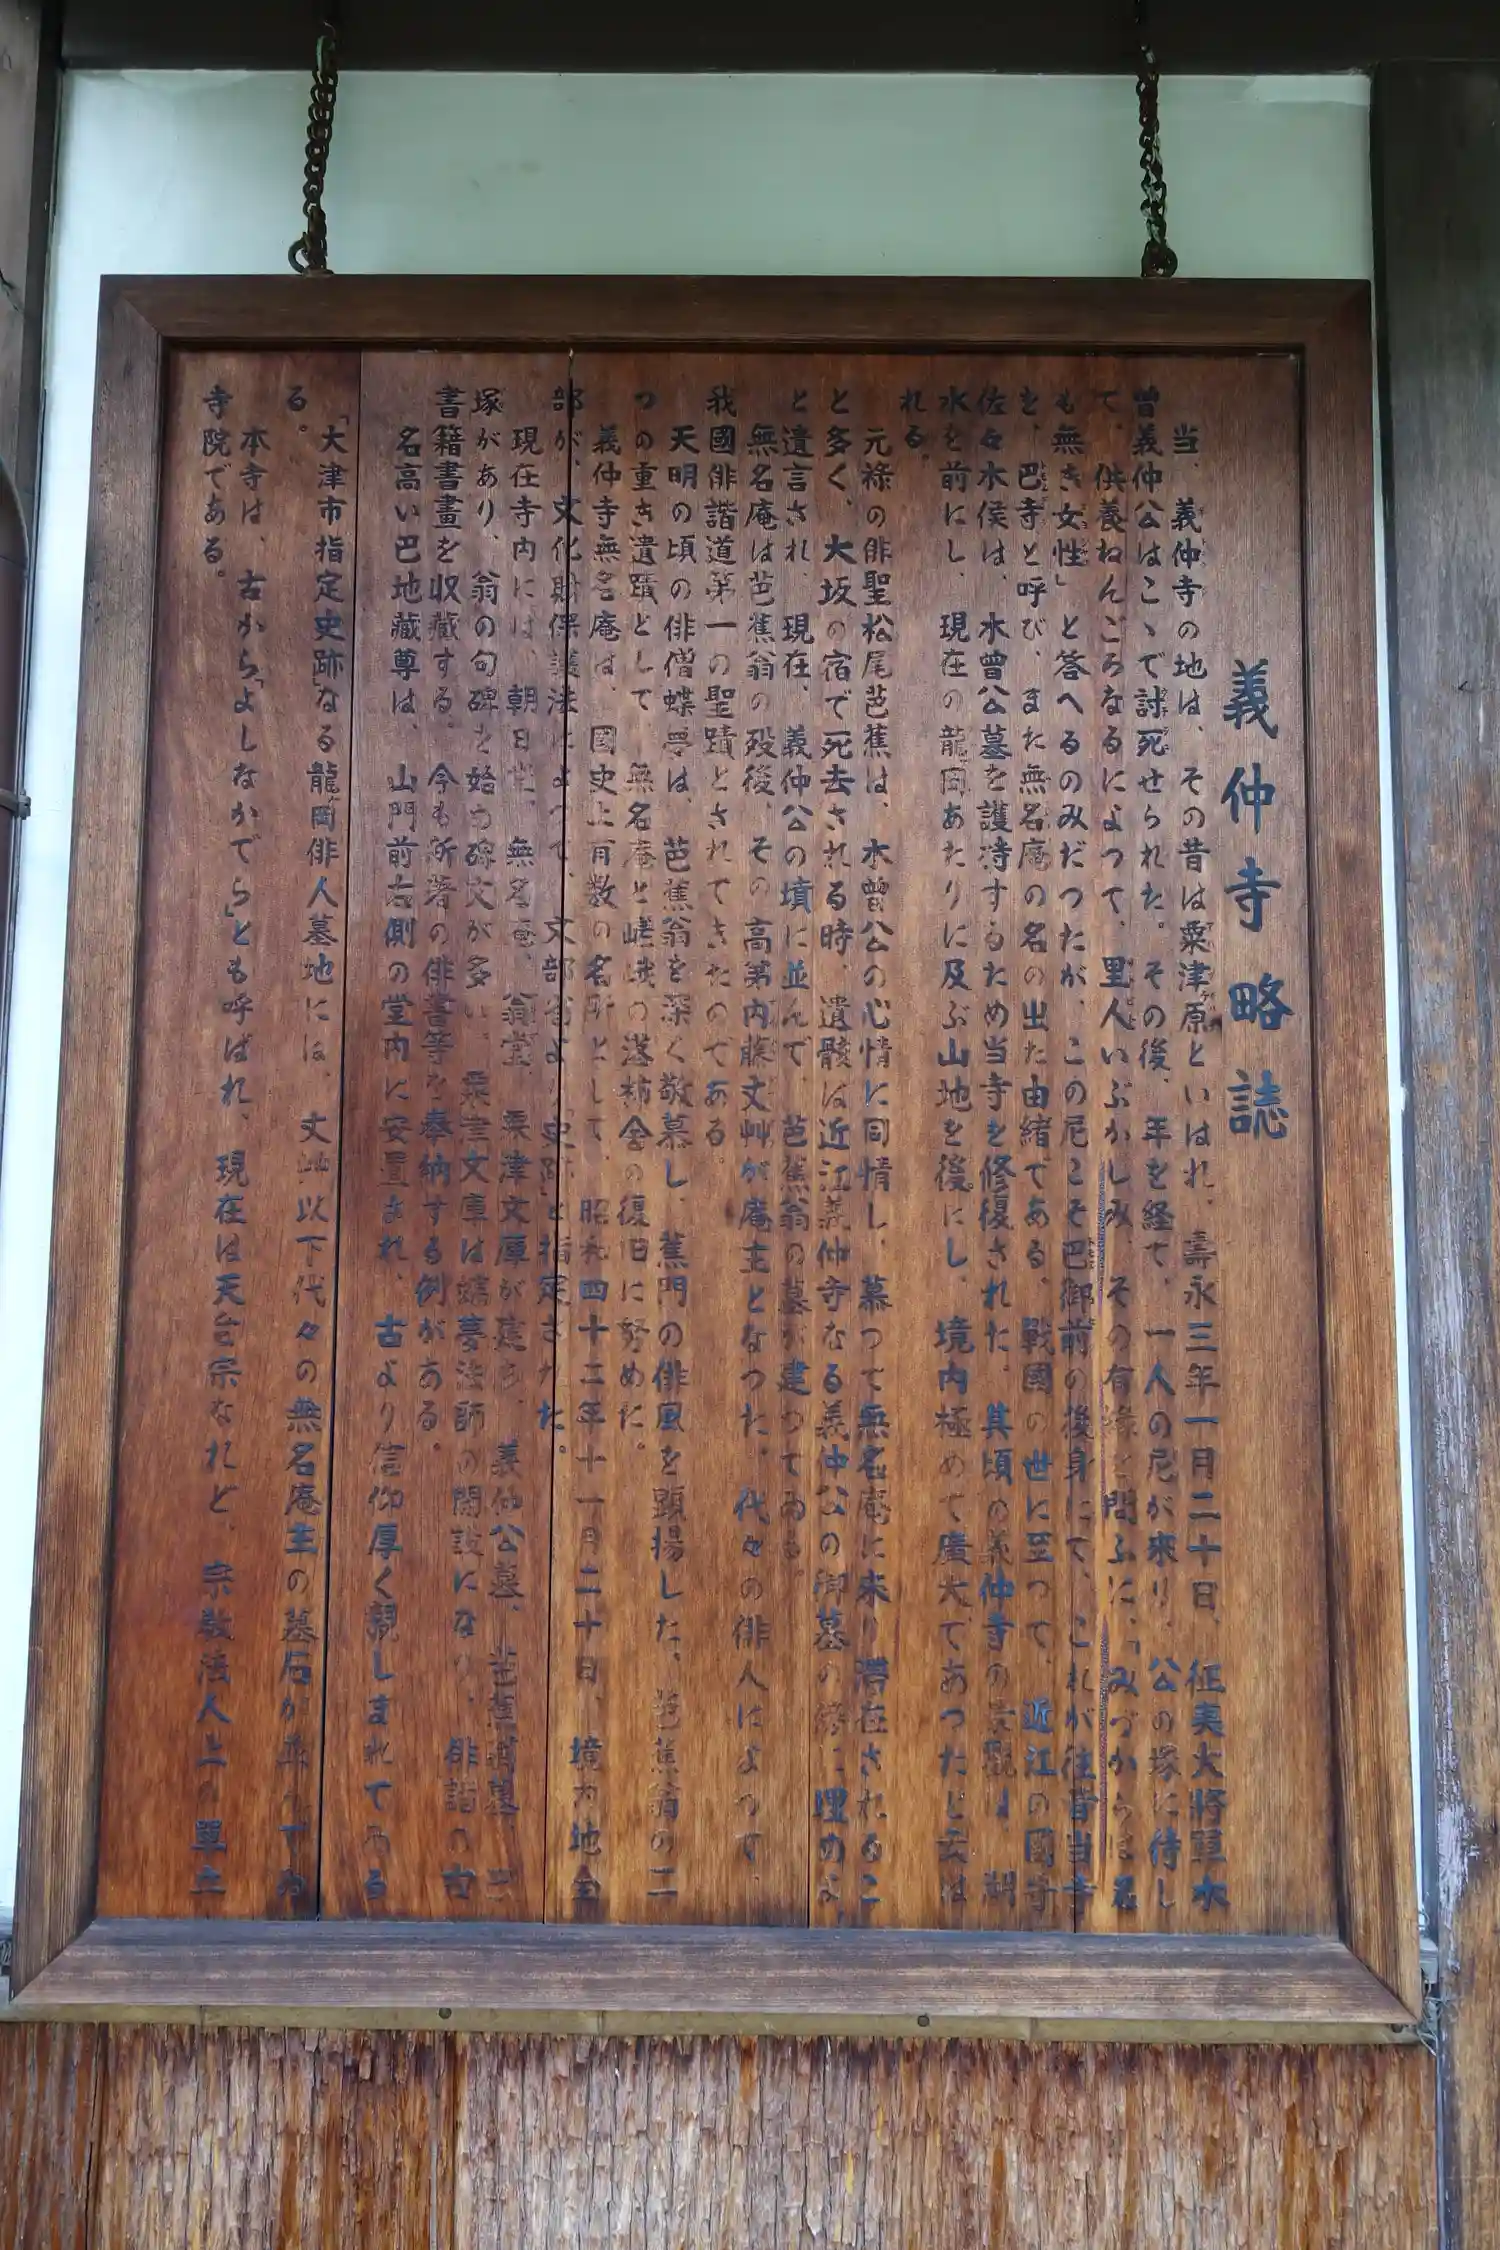 義仲寺略誌
当、義仲寺の地は、その昔は粟津原といはれ、壽永三年一月二十日、征夷大将軍木
曽義仲公はこゝで討死せられた。その後、年を経て、一人の尼が来り、公の塚に侍し
て、供養ねんごろなるによつて、里人いぶかしみ、その有縁を問ふに、「みづからは名
も無き女性」と答へるのみだつたが、この尼こそ巴御前の後身にて、これが往昔当寺
を、巴寺と呼び、また無名庵の名の出た由緒である。戰國の世に至つて、近江の國守
佐々木侯は、木曾公墓を護持するため当寺を修復された。其頃の義仲寺の景觀は、湖
水を前にし、現在の龍岡あたりに及ぶ山地を後にし、境内極めて廣大であつたと云は
れる。
元禄の俳聖松尾芭蕉は、木曾公の心情に同情し、慕つて無名庵に来り滞在されるこ
と多く、大坂の宿で死去される時、遺骸は近江義仲寺なる義仲公の御墓の傍に埋めよ、
と遺言され、現在、義仲公の墳に並んで、芭蕉翁の墓が建つてゐる。
無名庵は芭蕉翁の歿後、その高第内藤丈艸が庵主となつた。代々の俳人によつて、
我國俳諧道第一の聖蹟とされてきたのである。
天明の頃の俳僧蝶夢は、芭蕉翁を深く敬慕し、蕉門の俳風を顕揚した、芭蕉翁の二
つの重き遺蹟として、無名庵と嵯峨の落柿舎の復旧に努めた。
義仲寺無名庵は、國史上有数の名所として、昭和四十二年十一月二十日、境内地全
部が、文化財保護法によつて、文部省より「史跡」と指定された。
現在寺内には、朝日堂、無名庵、翁堂、粟津文庫が建ち、義仲公墓、芭蕉翁墓、巴
塚があり、翁の句碑を始め碑文が多い、粟津文庫は蝶夢法師の開設になり、俳諧の古
書籍書畫を収藏する。今も新著の俳書等を奉納する例がある。
名高い巴地藏尊は、山門前右側の堂内に安置され、古より信仰厚く親しまれてゐる
「大津市指定史跡」なる龍岡俳人墓地には、丈艸以下代々の無名庵主の墓石が並んでゐ
る。
本寺は、古から「よしなかでら」とも呼ばれ、現在は天台宗なれど、宗教法人上の單立
寺院である。